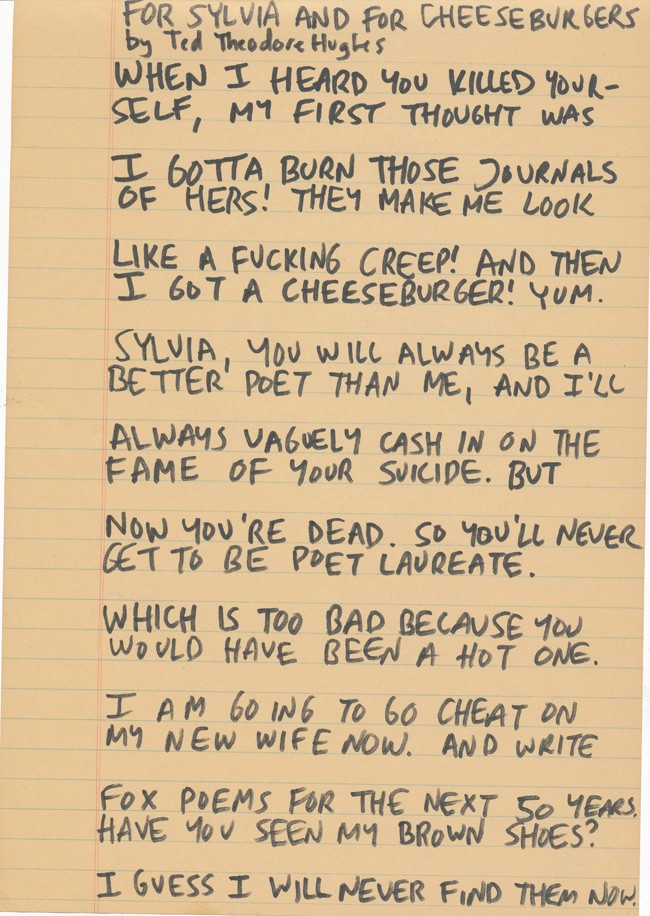 FOR SYLVIA AND FOR CHEESEBURGERS
by Ted Theodore Hughes
WHEN I HEARD YOU KILLED YOUR-
SELF, MY FIRST THOUGHT WAS
I GOTTA BURN THOSE JOURNALS
OF HERS! THEY MAKE ME LOOK
LIKE A FUCKING CREEP! AND THEN
I GOT A CHEESEBURGER! YUM.
SYLVIA, YOU WILL ALWAYS BE A
BETTER POET THAN ME, AND I'LL
ALWAYS VAGUELY CASH IN ON THE
FAME OF YOUR SUICIDE. BUT
NOW YOU'RE DEAD. SO YOU'LL NEVER
GET TO BE POET LAUREATE.
WHICH IS TOO BAD BECAUSE YOU
WOULD HAVE BEEN A HOT ONE.
I AM GOING TO GO CHEAT ON
MY NEW WIFE NOW. AND WRITE
FOX POEMS FOR THE NEXT 50 YEARS.
HAVE YOU SEEN MY BROWN SHOES?
I GUESS I WILL NEVER FIND THEM NOW.